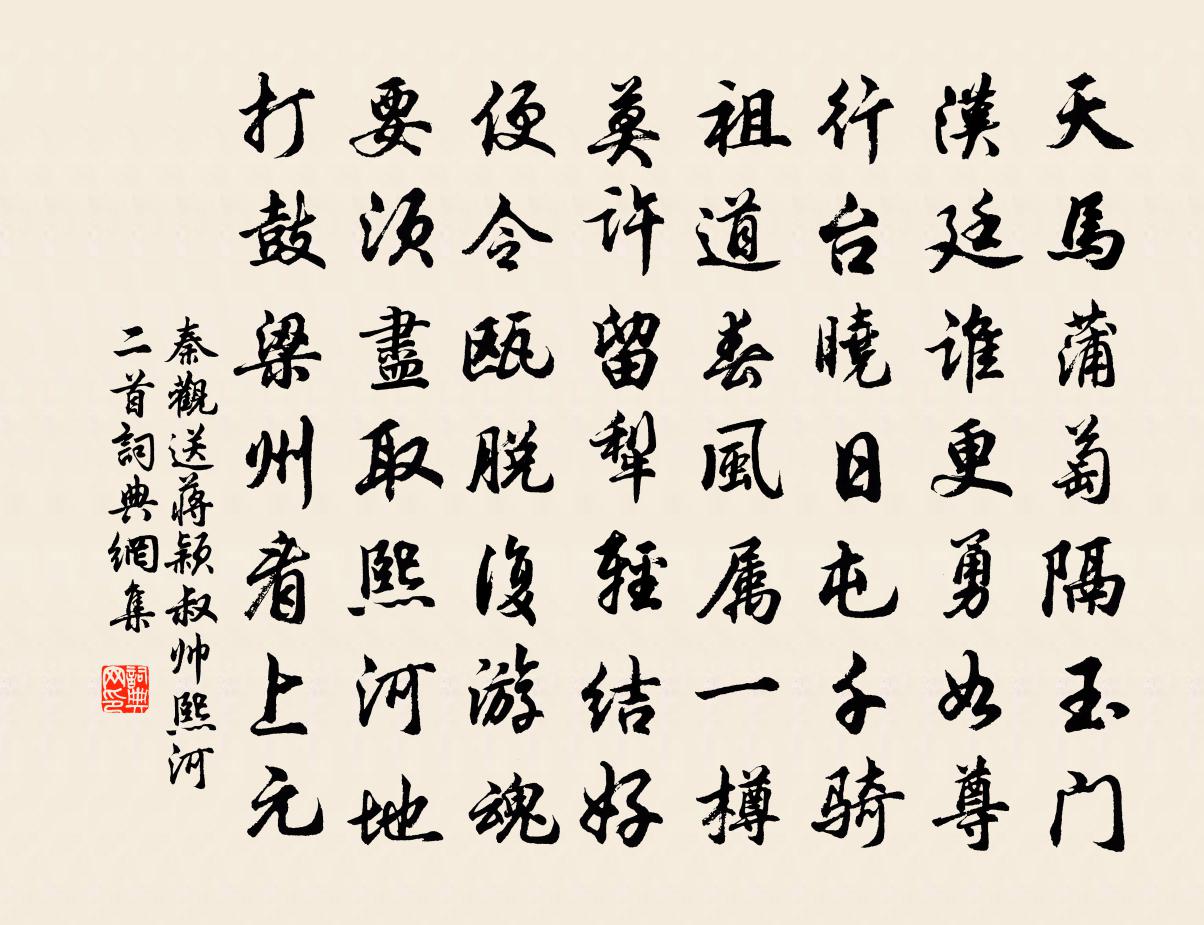 天馬蒲萄隔玉门
漢廷谁更勇如尊
行台曉日屯千骑
祖道春風属一樽
莫许留犁輕结好
便令瓯脱復游魂
要须盡取熙河地
打鼓梁州看上元
秦觀送蔣颖叔帅熙河
二首詞典網集
詞典网印